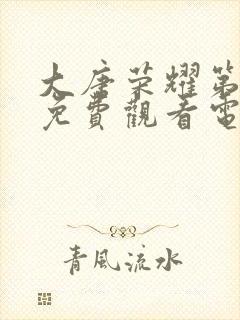 大唐荣耀第
免費觀看電
青風流水